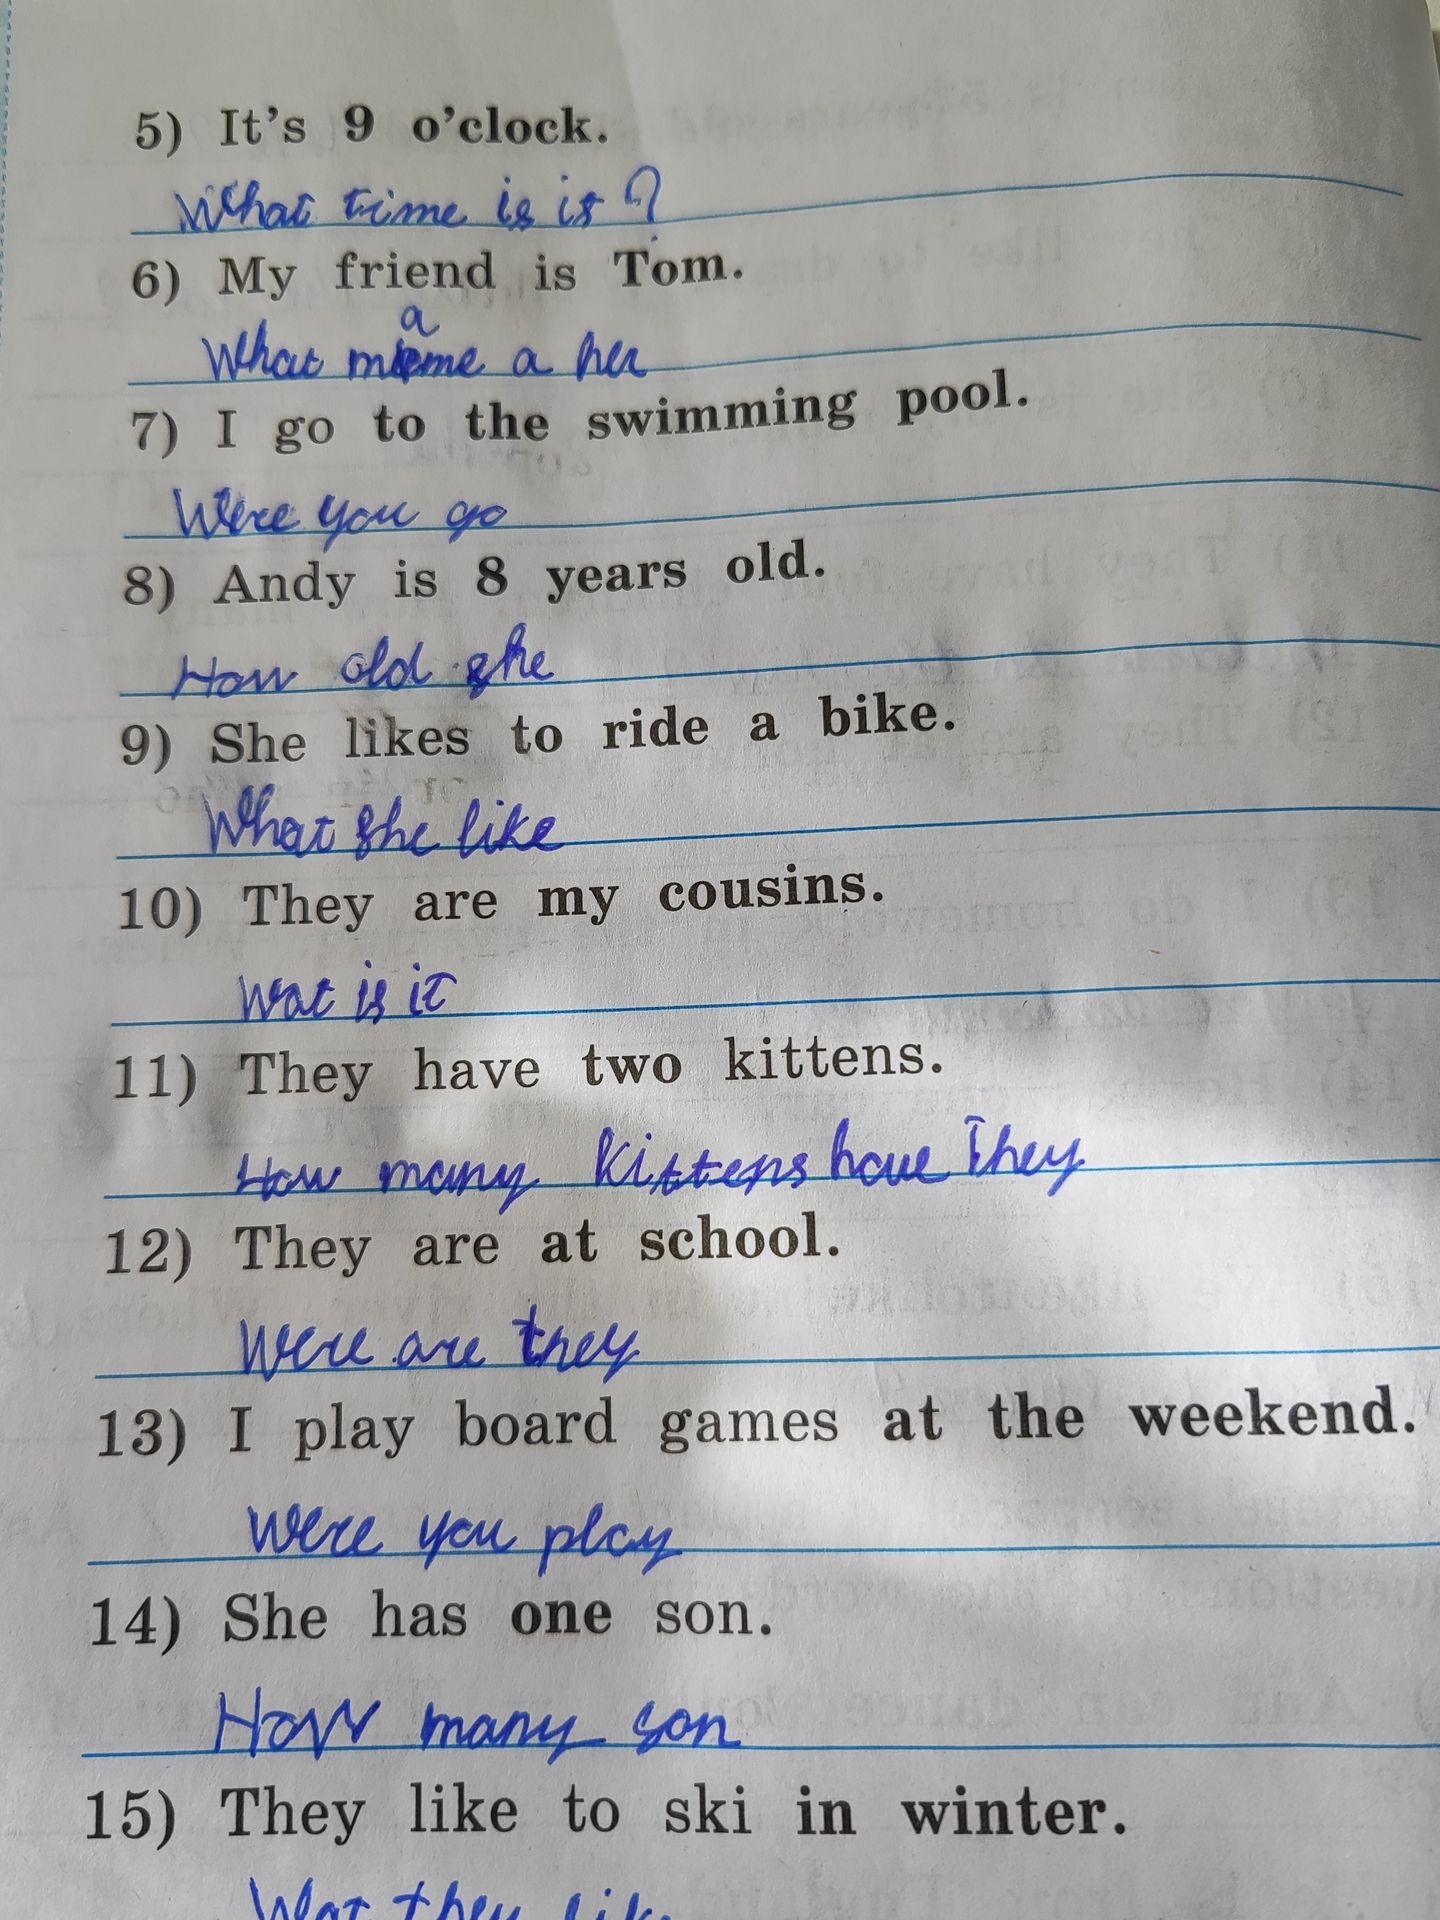 5) It's 9 o'clock.
What time is is ?
6) My friend is Tom.
What mame a her
7) I go to the swimming pool.
Were you go
8) Andy is 8 years old.
How old she
9) She likes to ride a bike.
What she like
10) They are my cousins.
Wat is it
11) They have two kittens.
How many kittens have They
12) They are at school.
Were are they
13) I play board games at the weekend.
Were you play
14) She has one son.
How many son
15) They like to ski in winter.
Wat they like